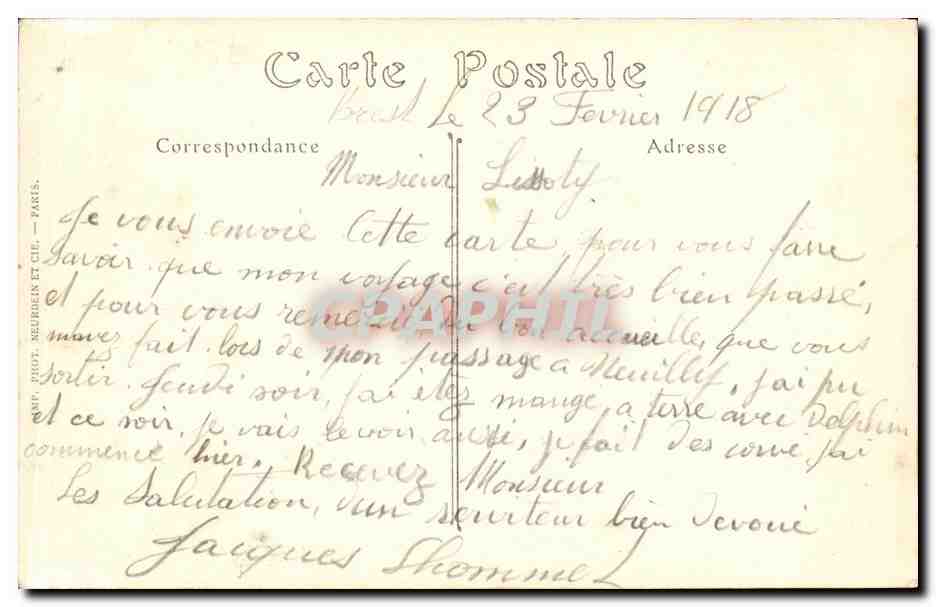 Carte Postale
Brest le 23 Fevrier 1918
Correspondance
Adresse
Monsieur
Je vous envoie cette carte, pour vous faire
savoir que mon voyage c'est très bien passé,
et pour vous remercier du bon accueille, que vous
mavez fait lors de mon passage a Neuilly, j'ai pu
sortir Jeudi soir, j'ai étez mangé, a terre avec Delphin
et ce soir, je vais le voir aussi, je fait des corvé, j'ai
commencé hier, Recevez Monsieur
Les Salutation, d'un serviteur bien devoué
Jacques Lhommel
IMP. PHOT. NEURDEIN ET CIE. — PARIS.
CPAPHIL